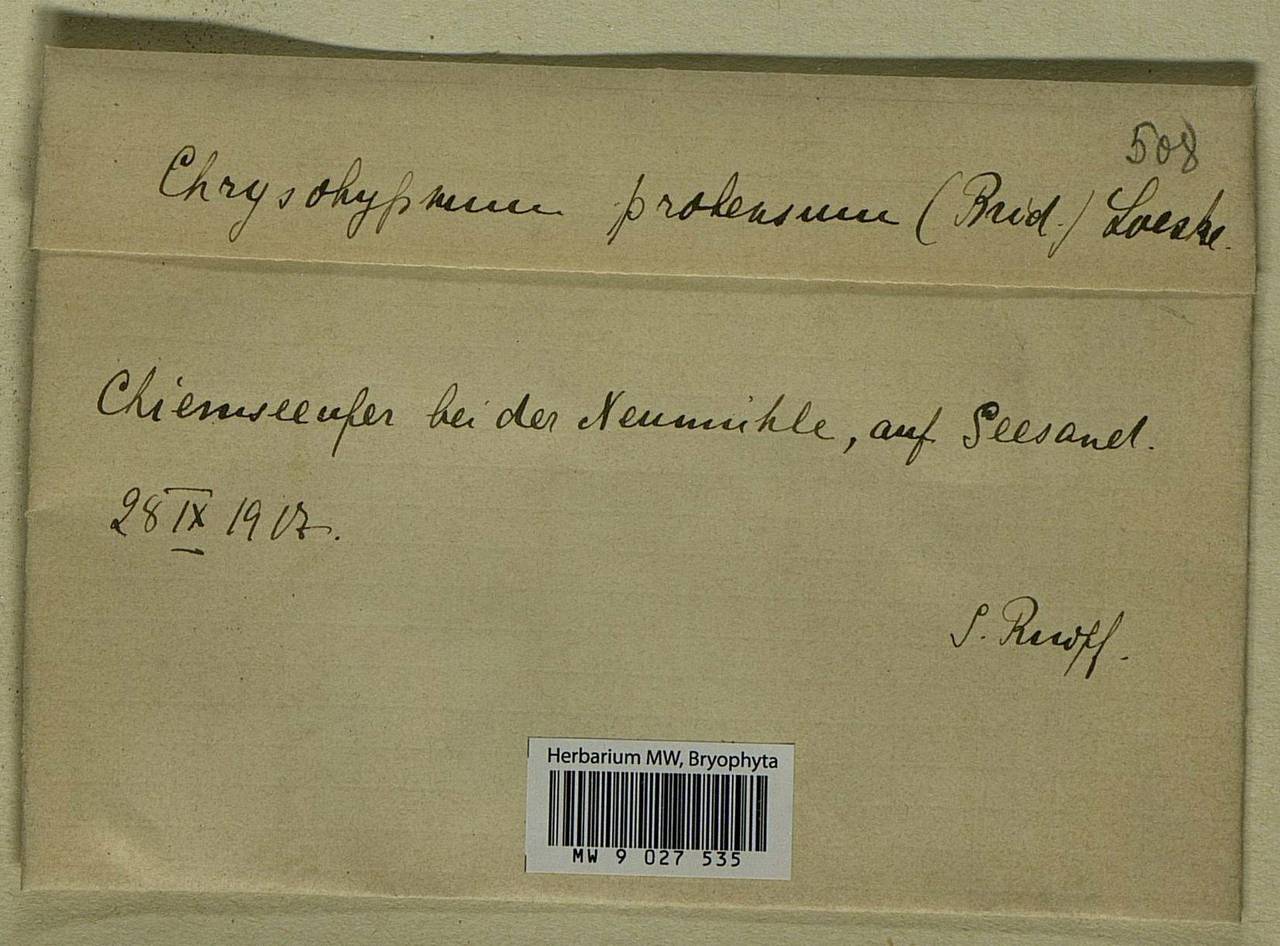 508
Chrysohypnum protensum (Brid.) Loeske.
Chiemseeufer bei der Neumühle, auf Seesand.
28 IX 1917.
S. Ruoff.
Herbarium MW, Bryophyta
MW 9 027 535